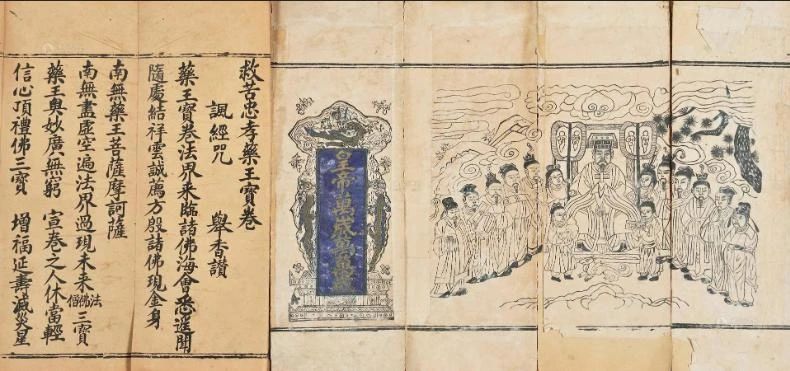 皇帝萬歲萬萬歲
救苦忠孝藥王寶卷
諷經咒 舉香讚
藥王寶卷法界来臨諸佛海會悉遥聞
隨處結祥雲誠薦方殷諸佛現金身
南無藥王菩薩摩訶薩
南無盡虛空遍法界過現未来佛法僧三寶
藥王奥妙廣無窮 宣卷之人休當輕
信心頂禮佛三寶 增福延壽滅災星